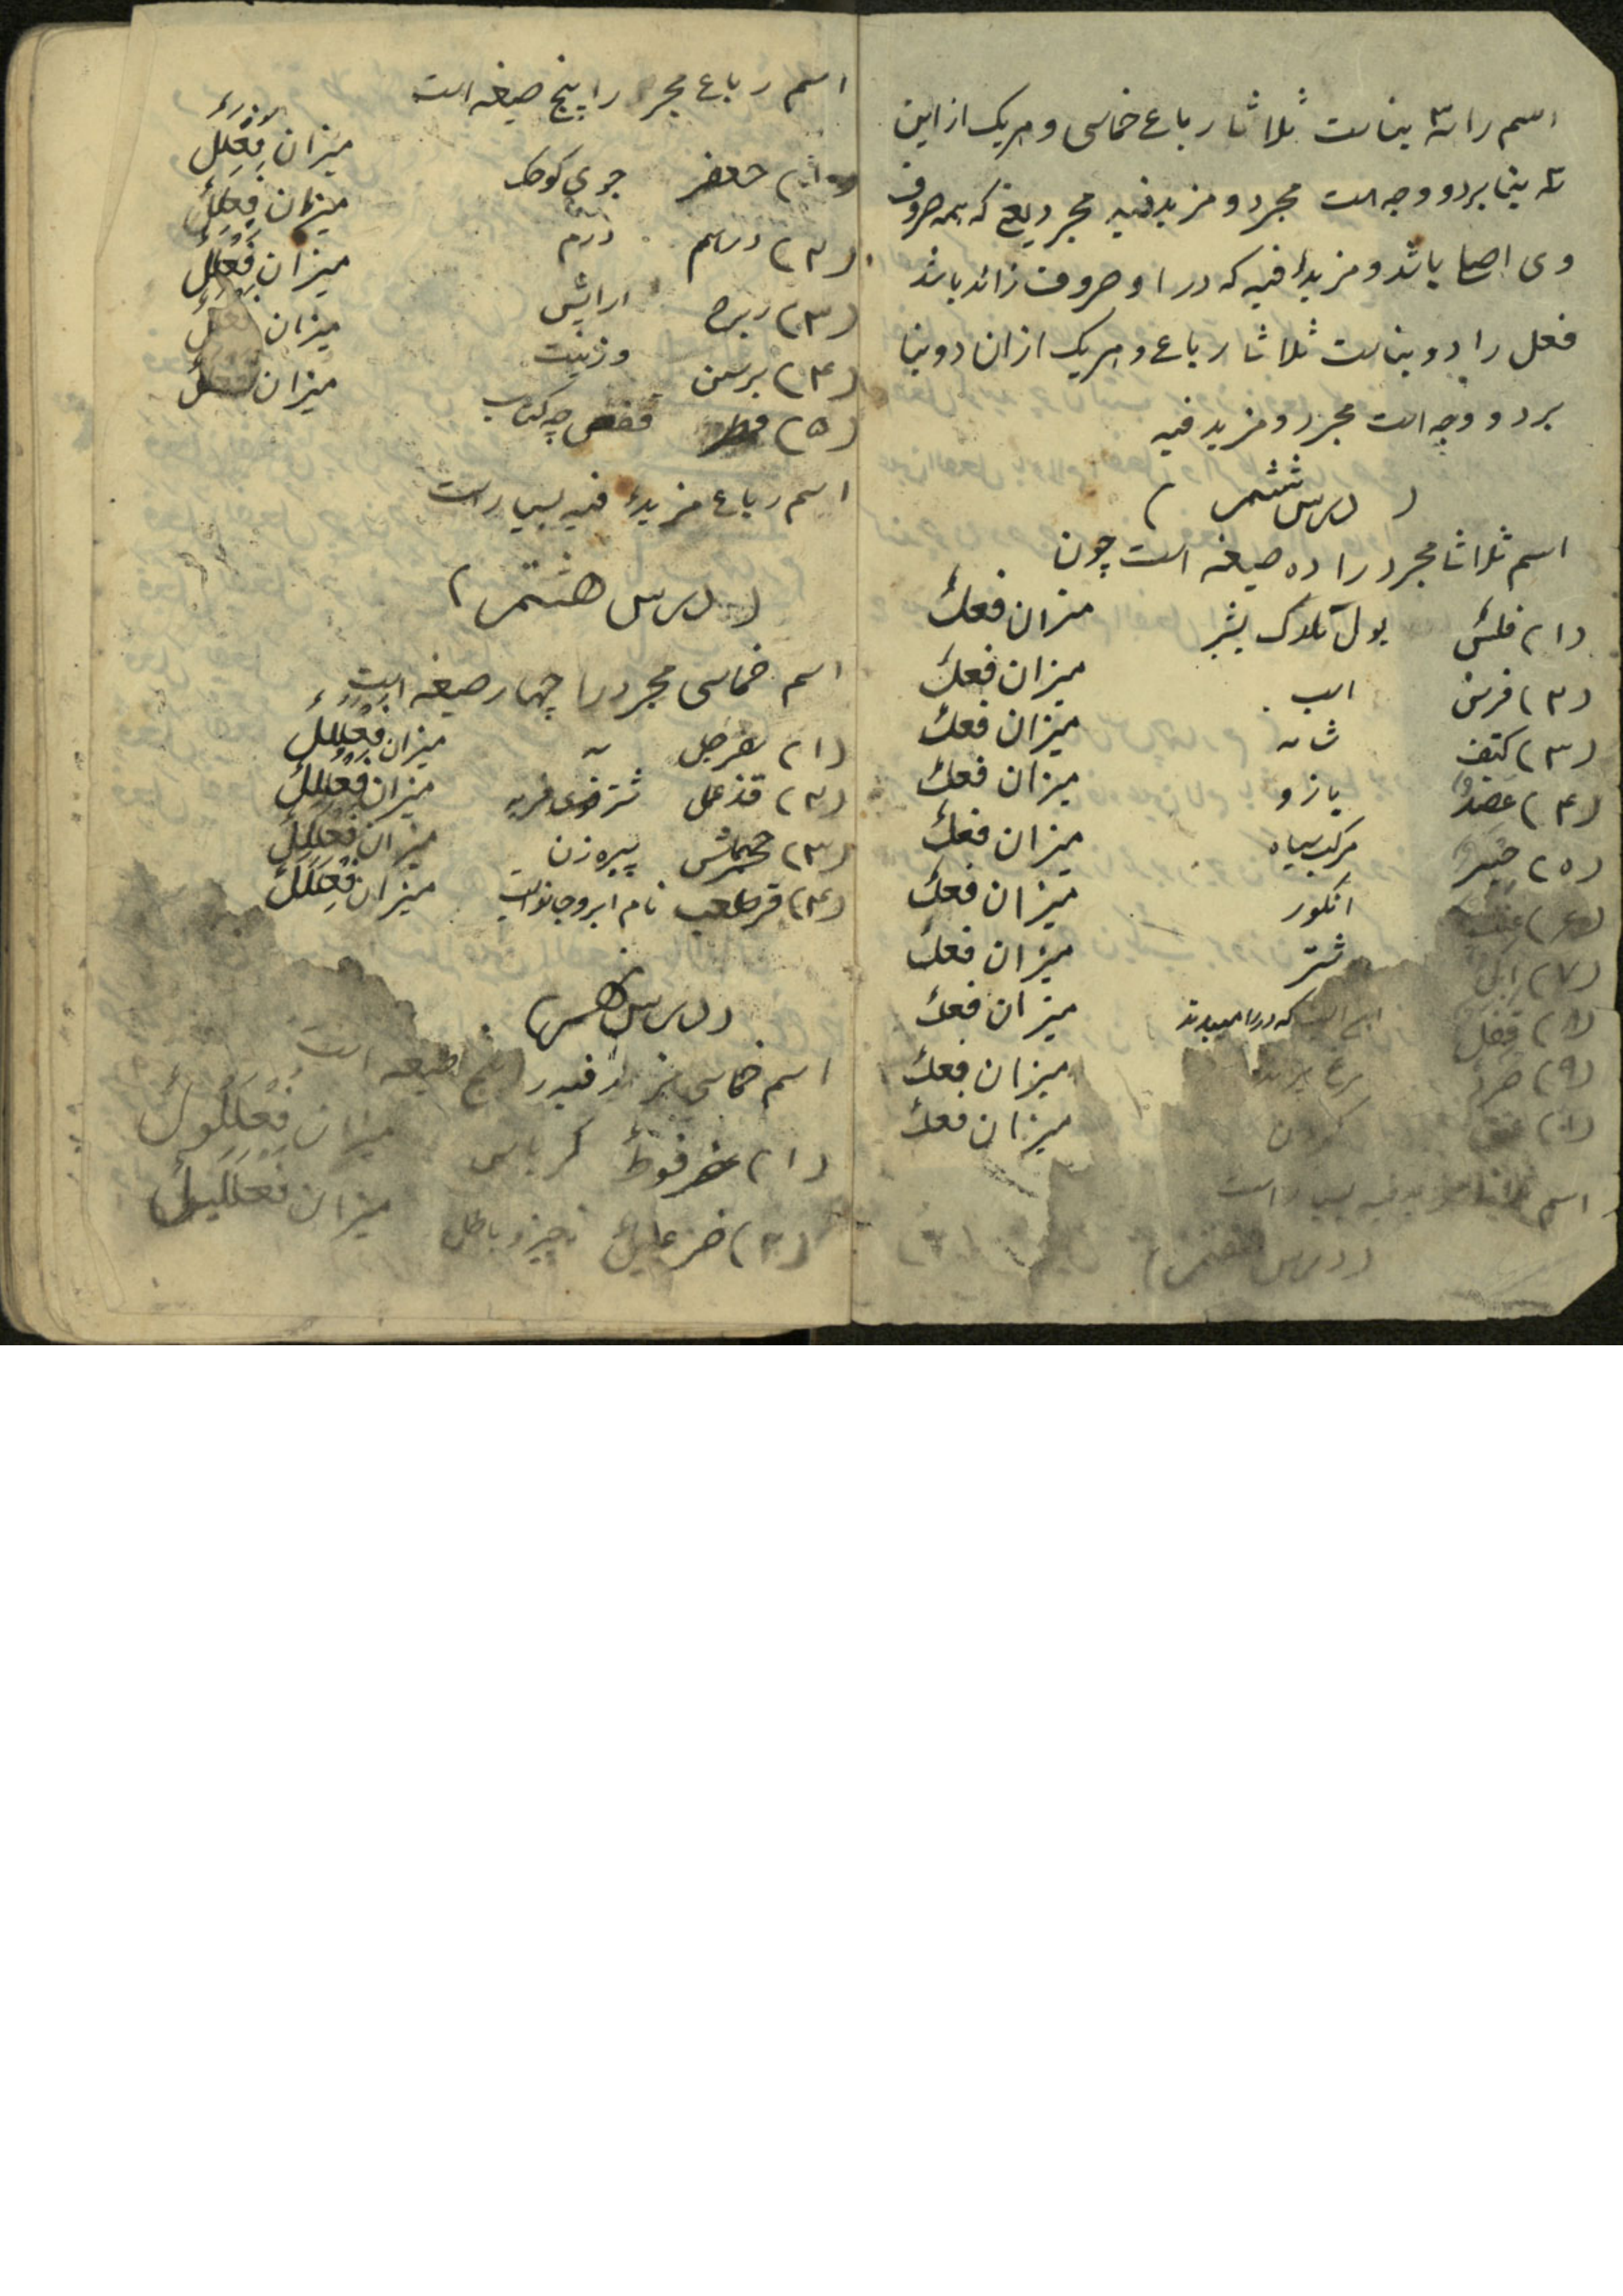 اسم را سه بناست ثلاثا رباع خماسی و هریک از این
سه بنا بر دو وجه است مجرد و مزید فیه مجرد یعنی که همه حروف
وی اصلی باشد و مزیدٌ فیه که در او حروف زائد باشد
فعل را دو بناست ثلاثا رباع و هریک از ان دو بنا
بر دو وجه است مجرد و مزید فیه
(درس ششم)
اسم ثلاثا مجرد را ده صیغه است چون
(۱) فلسٌ پول میزان فعلٌ
(۲) فرسٌ اسب میزان فعلٌ
(۳) کتف شانه میزان فعلٌ
(۴) عضدٌ بازو میزان فعلٌ
(۵) حبر مرکب سیاه میزان فعلٌ
(۶) عنب انگور میزان فعلٌ
(۷) ابل شتر میزان فعلٌ
(۸) قفل که در را میبندند میزان فعلٌ
(۹) صرد میزان فعلٌ
(۱۰) عنق گردن میزان فعلٌ
اسم ثلاثا مزید فیه بسیار است
(درس هفتم)
اسم رباع مجرد را پنج صیغه است
جعفر جوی کوچک میزان فعلل
(۲) درهم درم میزان فعلل
(۳) زبرج ارایش و زینت میزان فعلل
(۴) برثن میزان
(۵) قمطر میزان
اسم رباع مزیدٌ فیه بسیار است
(درس هشتم)
اسم خماسی مجرد را چهار صیغه است
(۱) میزان فعلل
(۲) قذعمل شتر فربه میزان فعلل
(۳) جحمرش پیره زن میزان فعللل
(۴) قرطعب میزان فعللل
(درس نهم)
اسم خماسی مزید فیه را پنج صیغه است
(۱) کرباس میزان فعللول
(۲) خزعلیل ناچیز و باطل میزان فعللیل